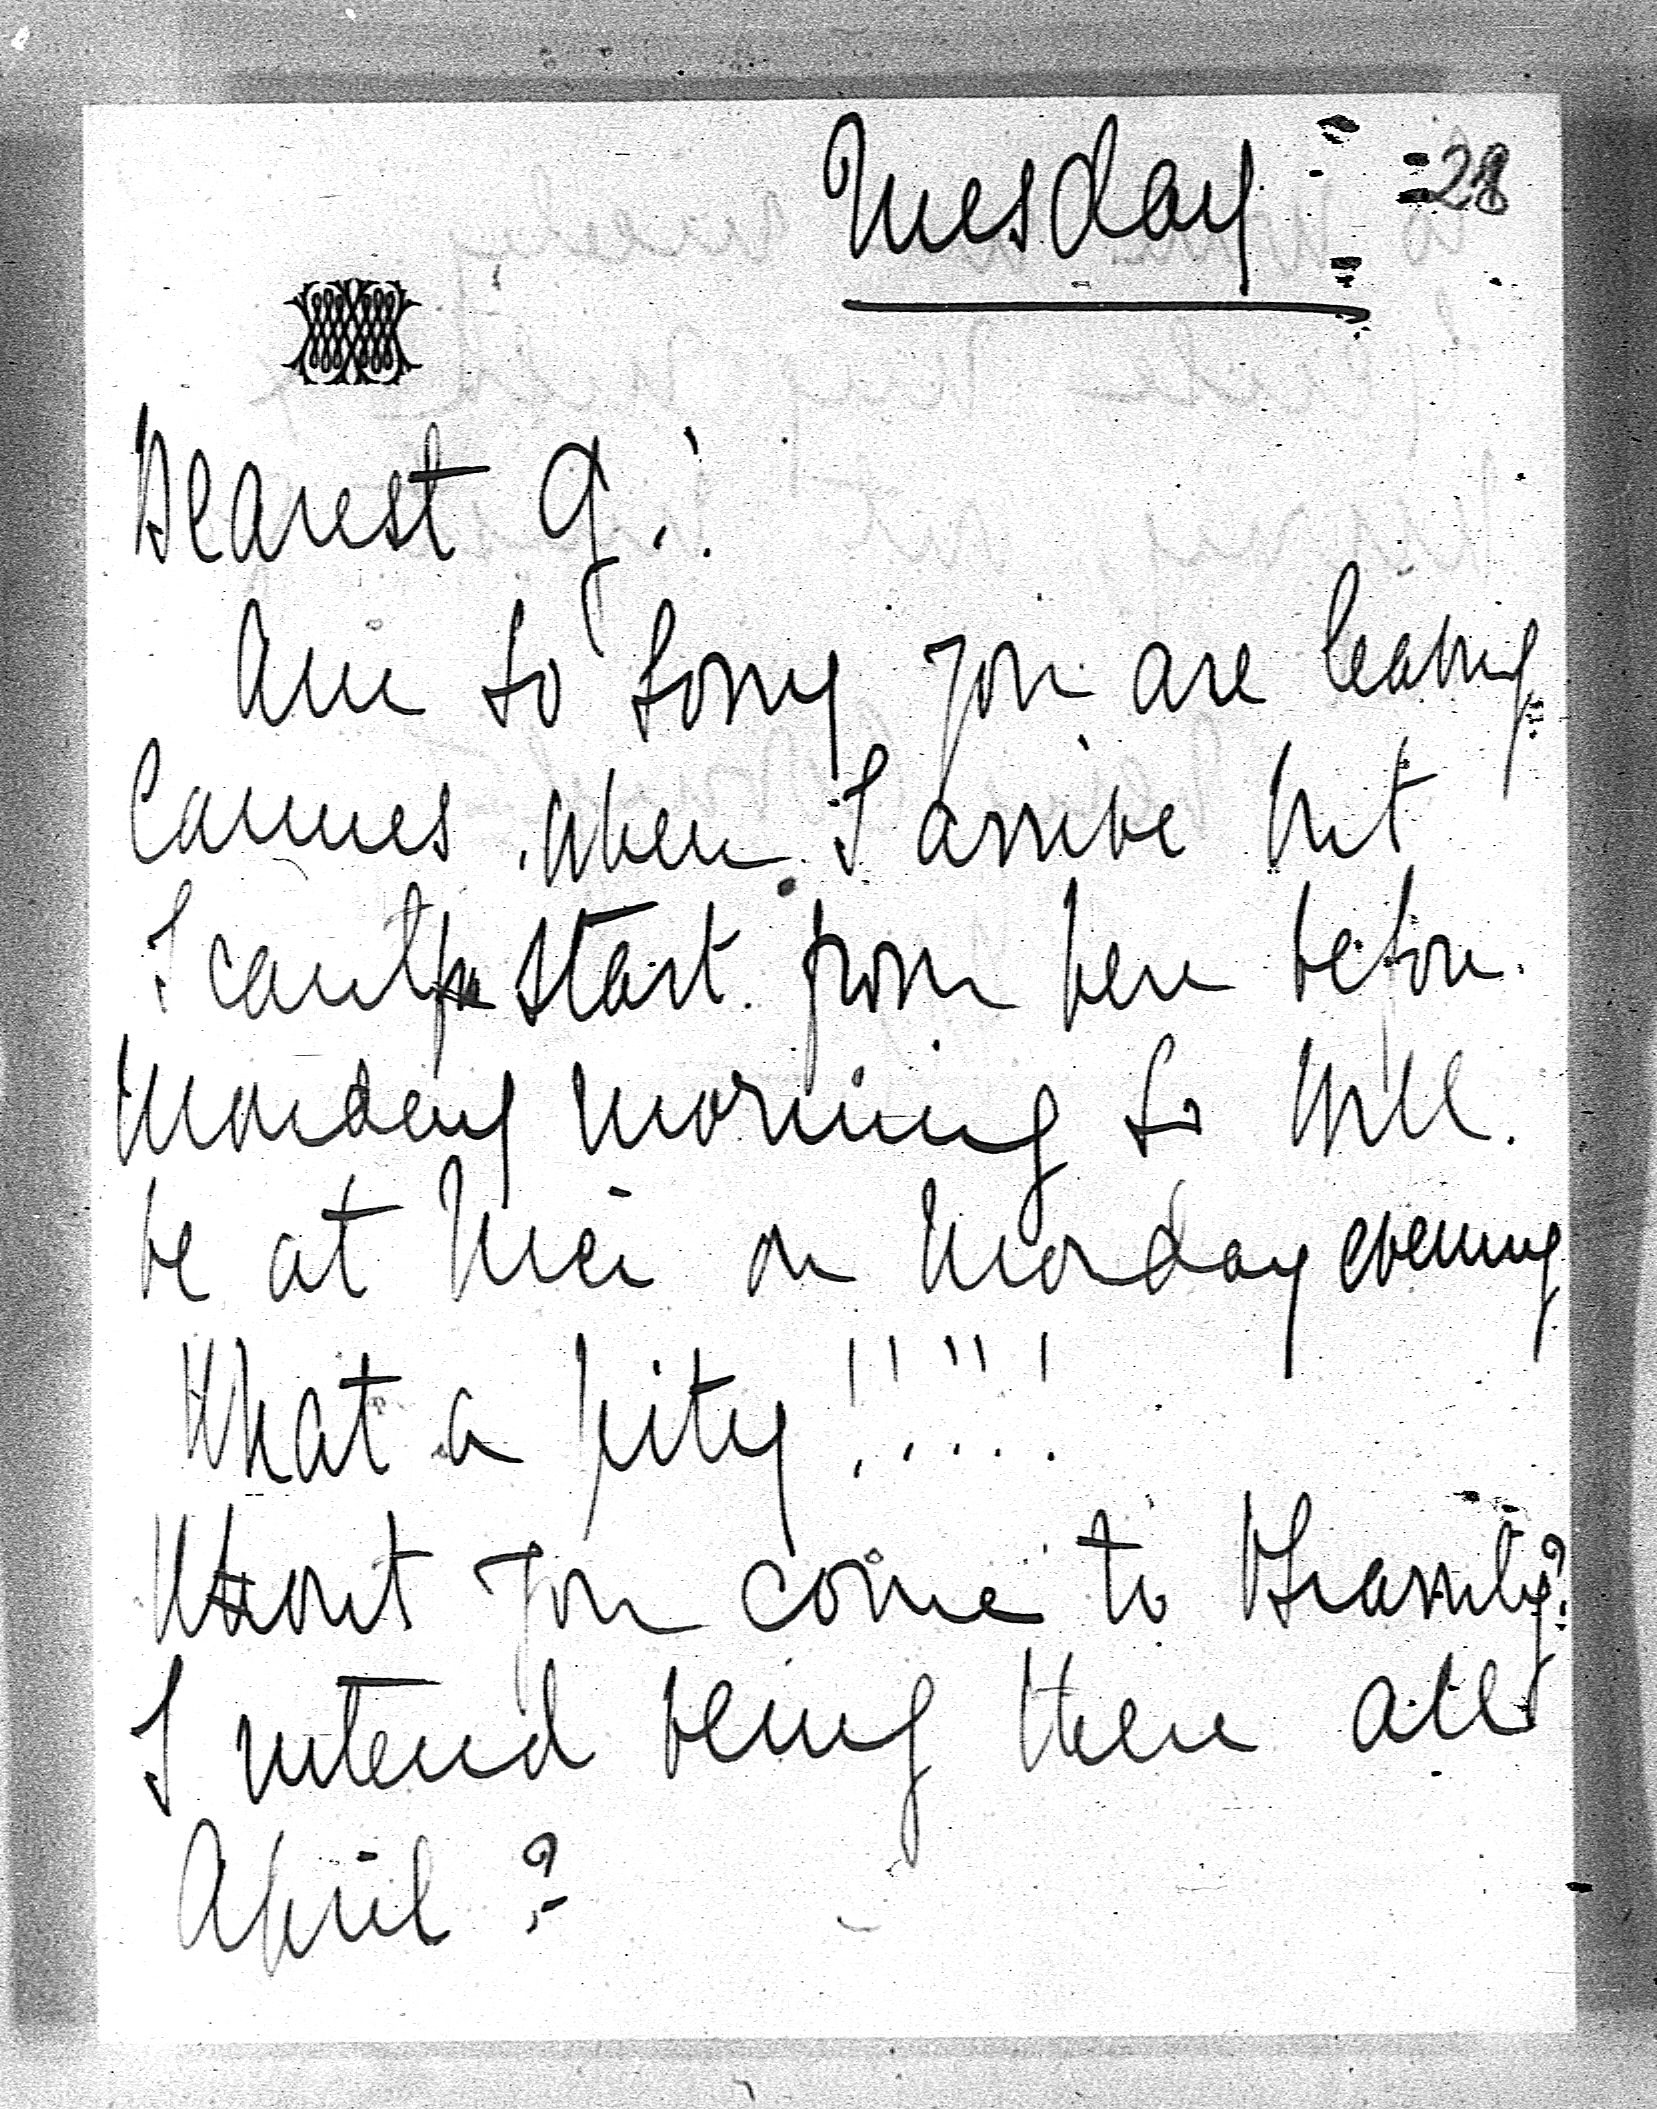 Tuesday 28
Dearest G.!
Am so sorry you are leaving
Cannes when I arrive but
I cant start from here before
Monday morning so will
be at Nice on Monday evening
What a pity!!!!!
Wont you come to
I intend being there all
April?